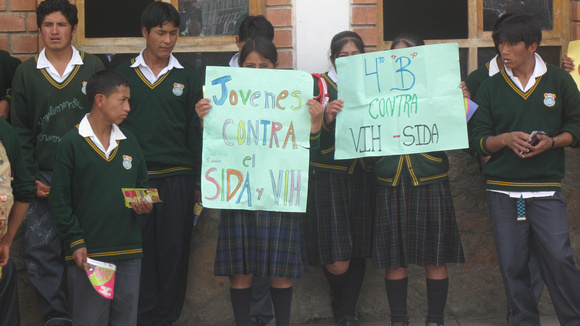 Jovenes
CONTRA
el
SIDA y VIH
4° "B"
CONTRA
VIH - SIDA